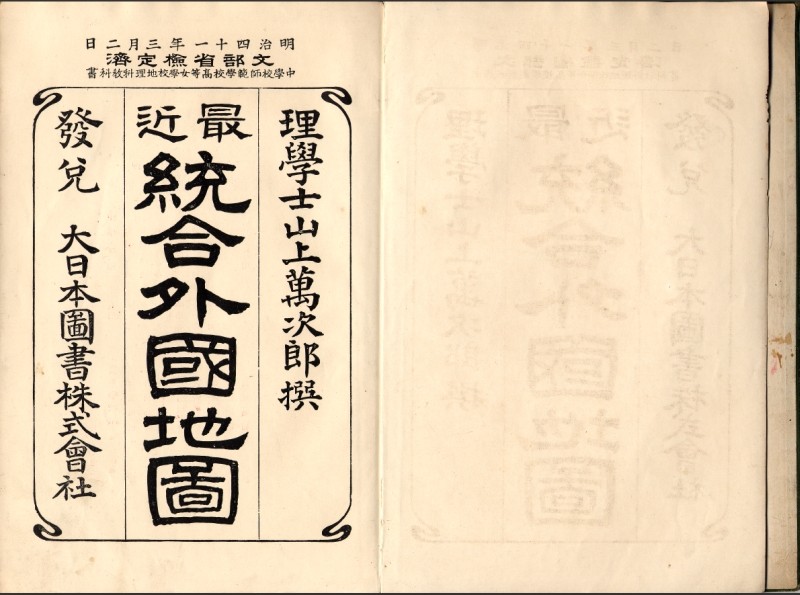 明治四十一年三月二日
文部省檢定濟
中學校師範學校高等女學校地理科敎科書
理學士山上萬次郎撰
最近
統合外國地圖
發兌 大日本圖書株式會社